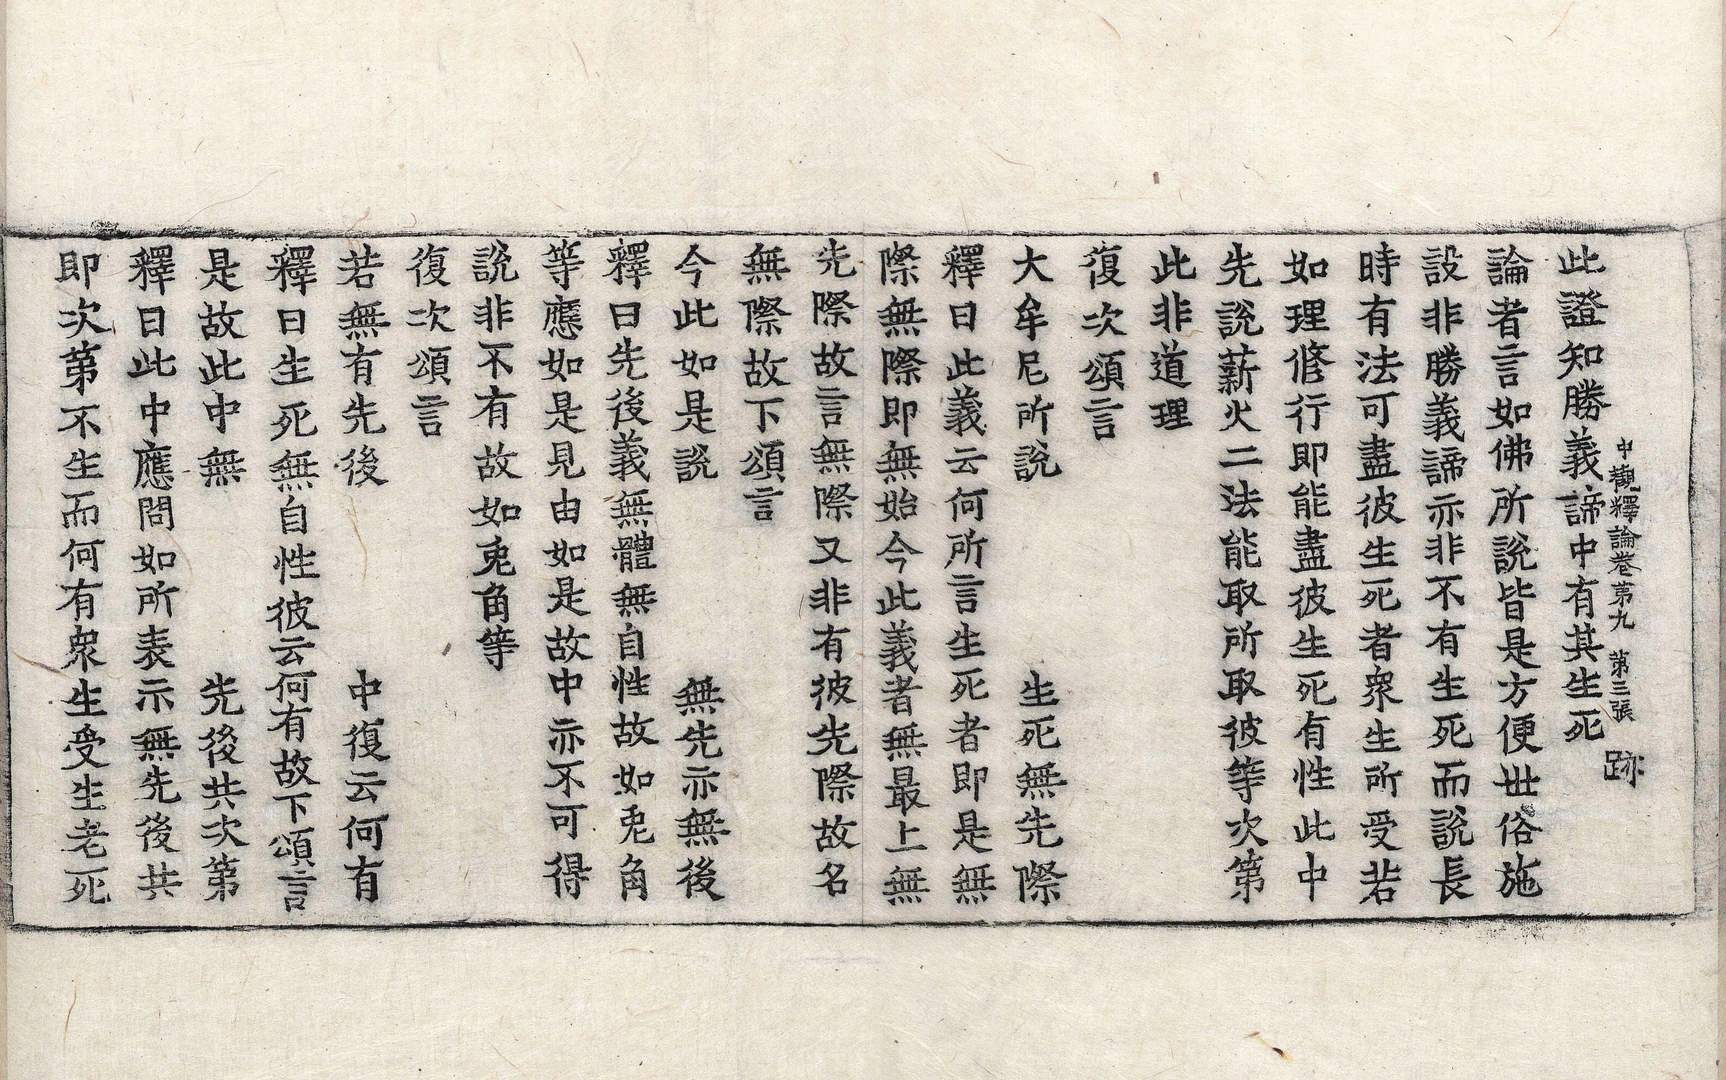 中觀釋論卷第九　第三張　跡
此證知勝義諦中有其生死
論者言如佛所說皆是方便世俗施
設非勝義諦亦非不有生死而說長
時有法可盡彼生死者衆生所受若
如理修行即能盡彼生死有性此中
先說薪火二法能取所取彼等次第
此非道理
復次頌言
大牟尼所說　生死無先際
釋曰此義云何所言生死者即是無
際無際即無始今此義者無最上無
先際故言無際又非有彼先際故名
無際故下頌言
今此如是說　無先亦無後
釋曰先後義無體無自性故如兎角
等應如是見由如是故中亦不可得
說非不有故如兎角等
復次頌言
若無有先後　中復云何有
釋曰生死無自性彼云何有故下頌言
是故此中無　先後共次第
釋曰此中應問如所表示無先後共
即次第不生而何有衆生受生老死